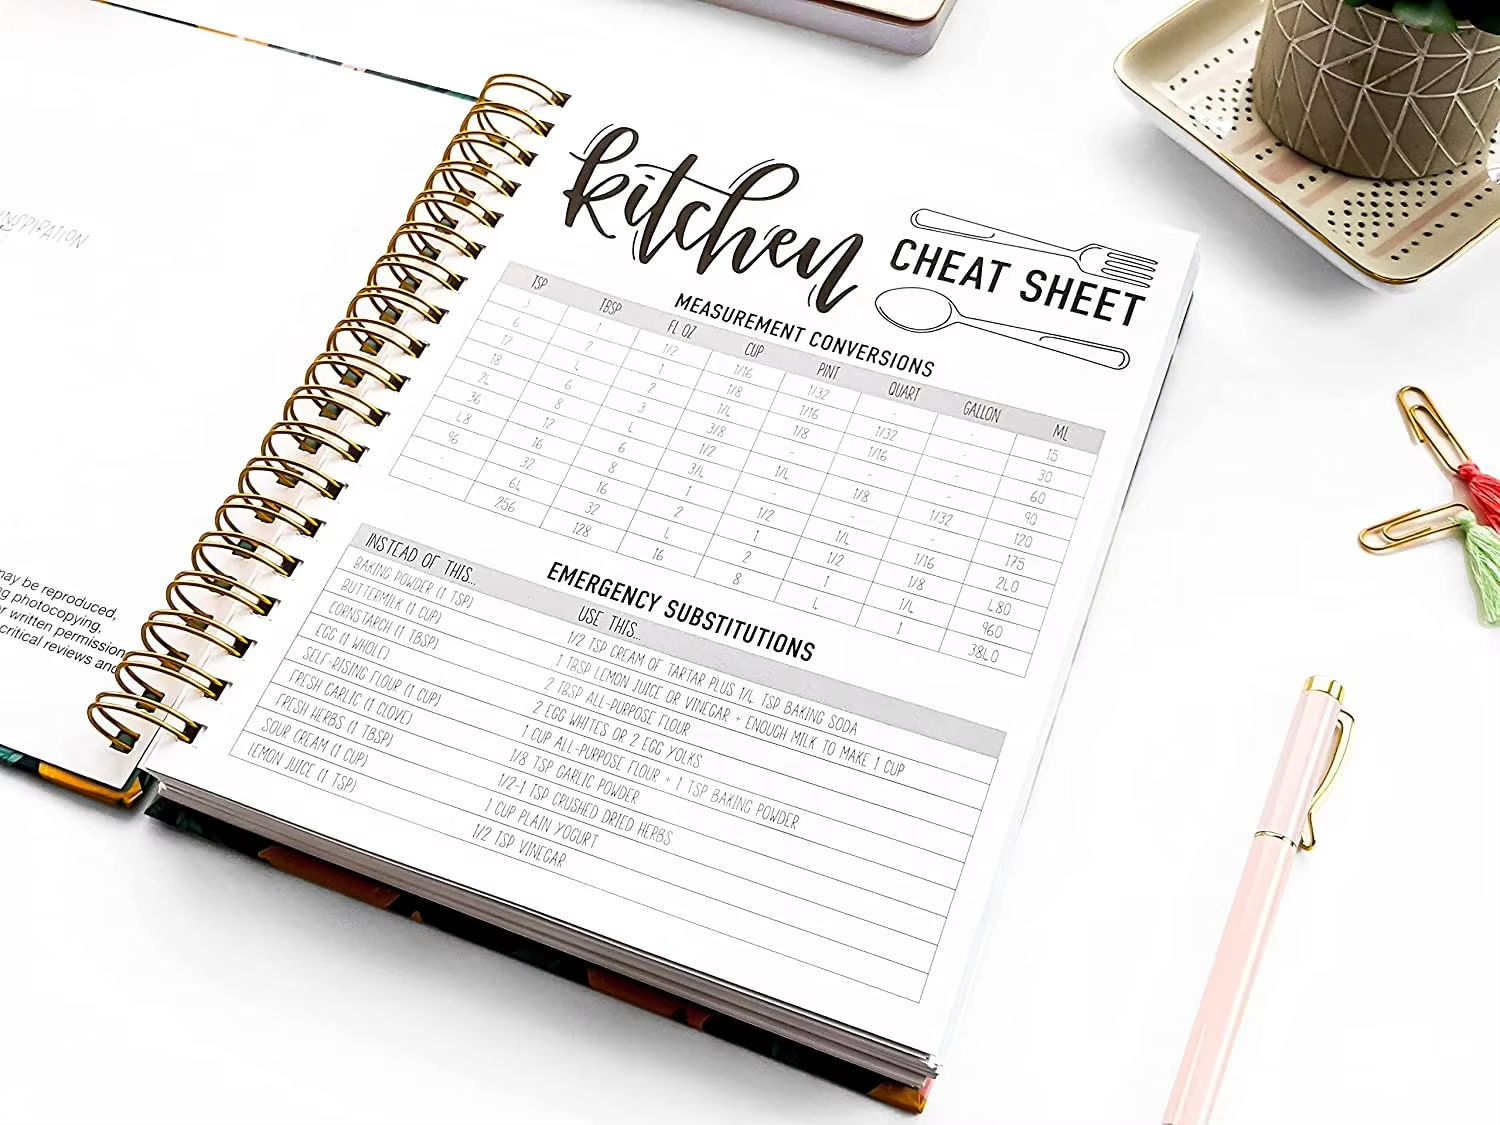 INSPIRATION
may be reproduced,
photocopying,
written permission
critical reviews and
kitchen CHEAT SHEET
MEASUREMENT CONVERSIONS
TSP TBSP FL OZ CUP PINT QUART GALLON ML
3 1 1/2 1/16 1/32 - - 15
6 2 1 1/8 1/16 1/32 - 30
12 4 2 1/4 1/8 1/16 - 60
18 6 3 3/8 - - - 90
24 8 4 1/2 1/4 1/8 1/32 120
36 12 6 3/4 - - - 175
48 16 8 1 1/2 1/4 1/16 240
96 32 16 2 1 1/2 1/8 480
- 64 32 4 2 1 1/4 960
- 256 128 16 8 4 1 3840
EMERGENCY SUBSTITUTIONS
INSTEAD OF THIS... USE THIS...
BAKING POWDER (1 TSP) 1/2 TSP CREAM OF TARTAR PLUS 1/4 TSP BAKING SODA
BUTTERMILK (1 CUP) 1 TBSP LEMON JUICE OR VINEGAR + ENOUGH MILK TO MAKE 1 CUP
CORNSTARCH (1 TBSP) 2 TBSP ALL-PURPOSE FLOUR
EGG (1 WHOLE) 2 EGG WHITES OR 2 EGG YOLKS
SELF-RISING FLOUR (1 CUP) 1 CUP ALL-PURPOSE FLOUR + 1 TSP BAKING POWDER
FRESH GARLIC (1 CLOVE) 1/8 TSP GARLIC POWDER
FRESH HERBS (1 TBSP) 1/2-1 TSP CRUSHED DRIED HERBS
SOUR CREAM (1 CUP) 1 CUP PLAIN YOGURT
LEMON JUICE (1 TSP) 1/2 TSP VINEGAR